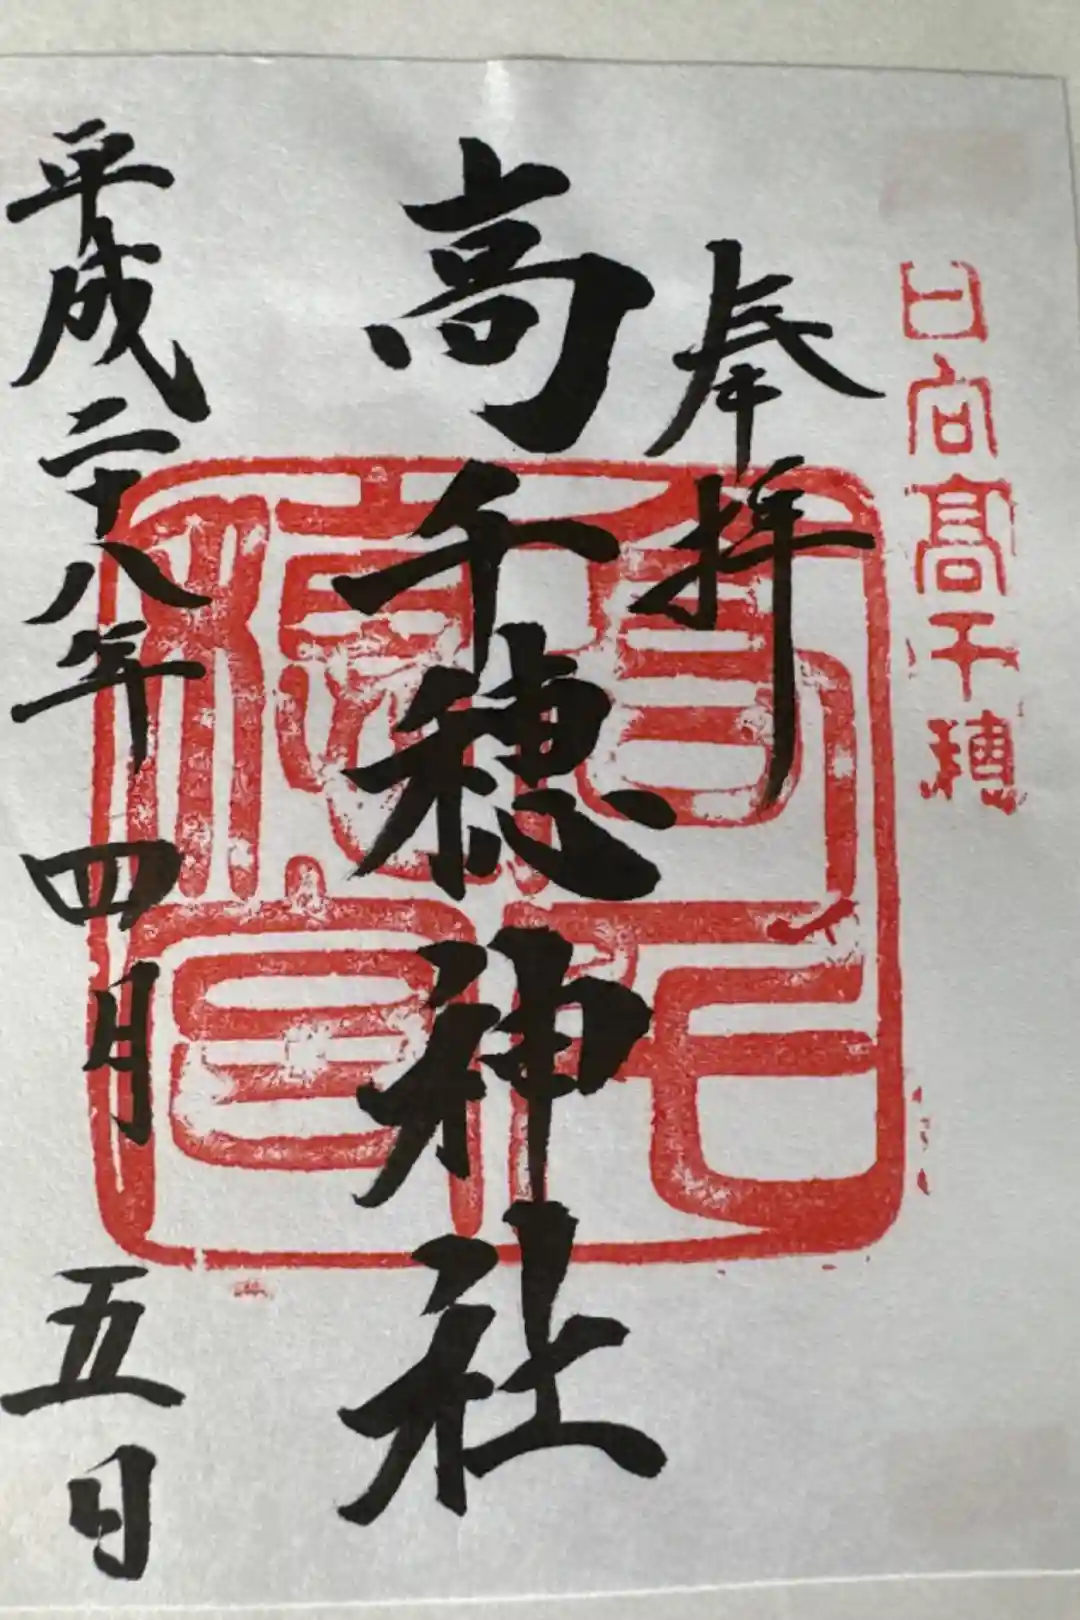 日向高千穂
奉拝
高千穂神社
平成二十八年四月五日